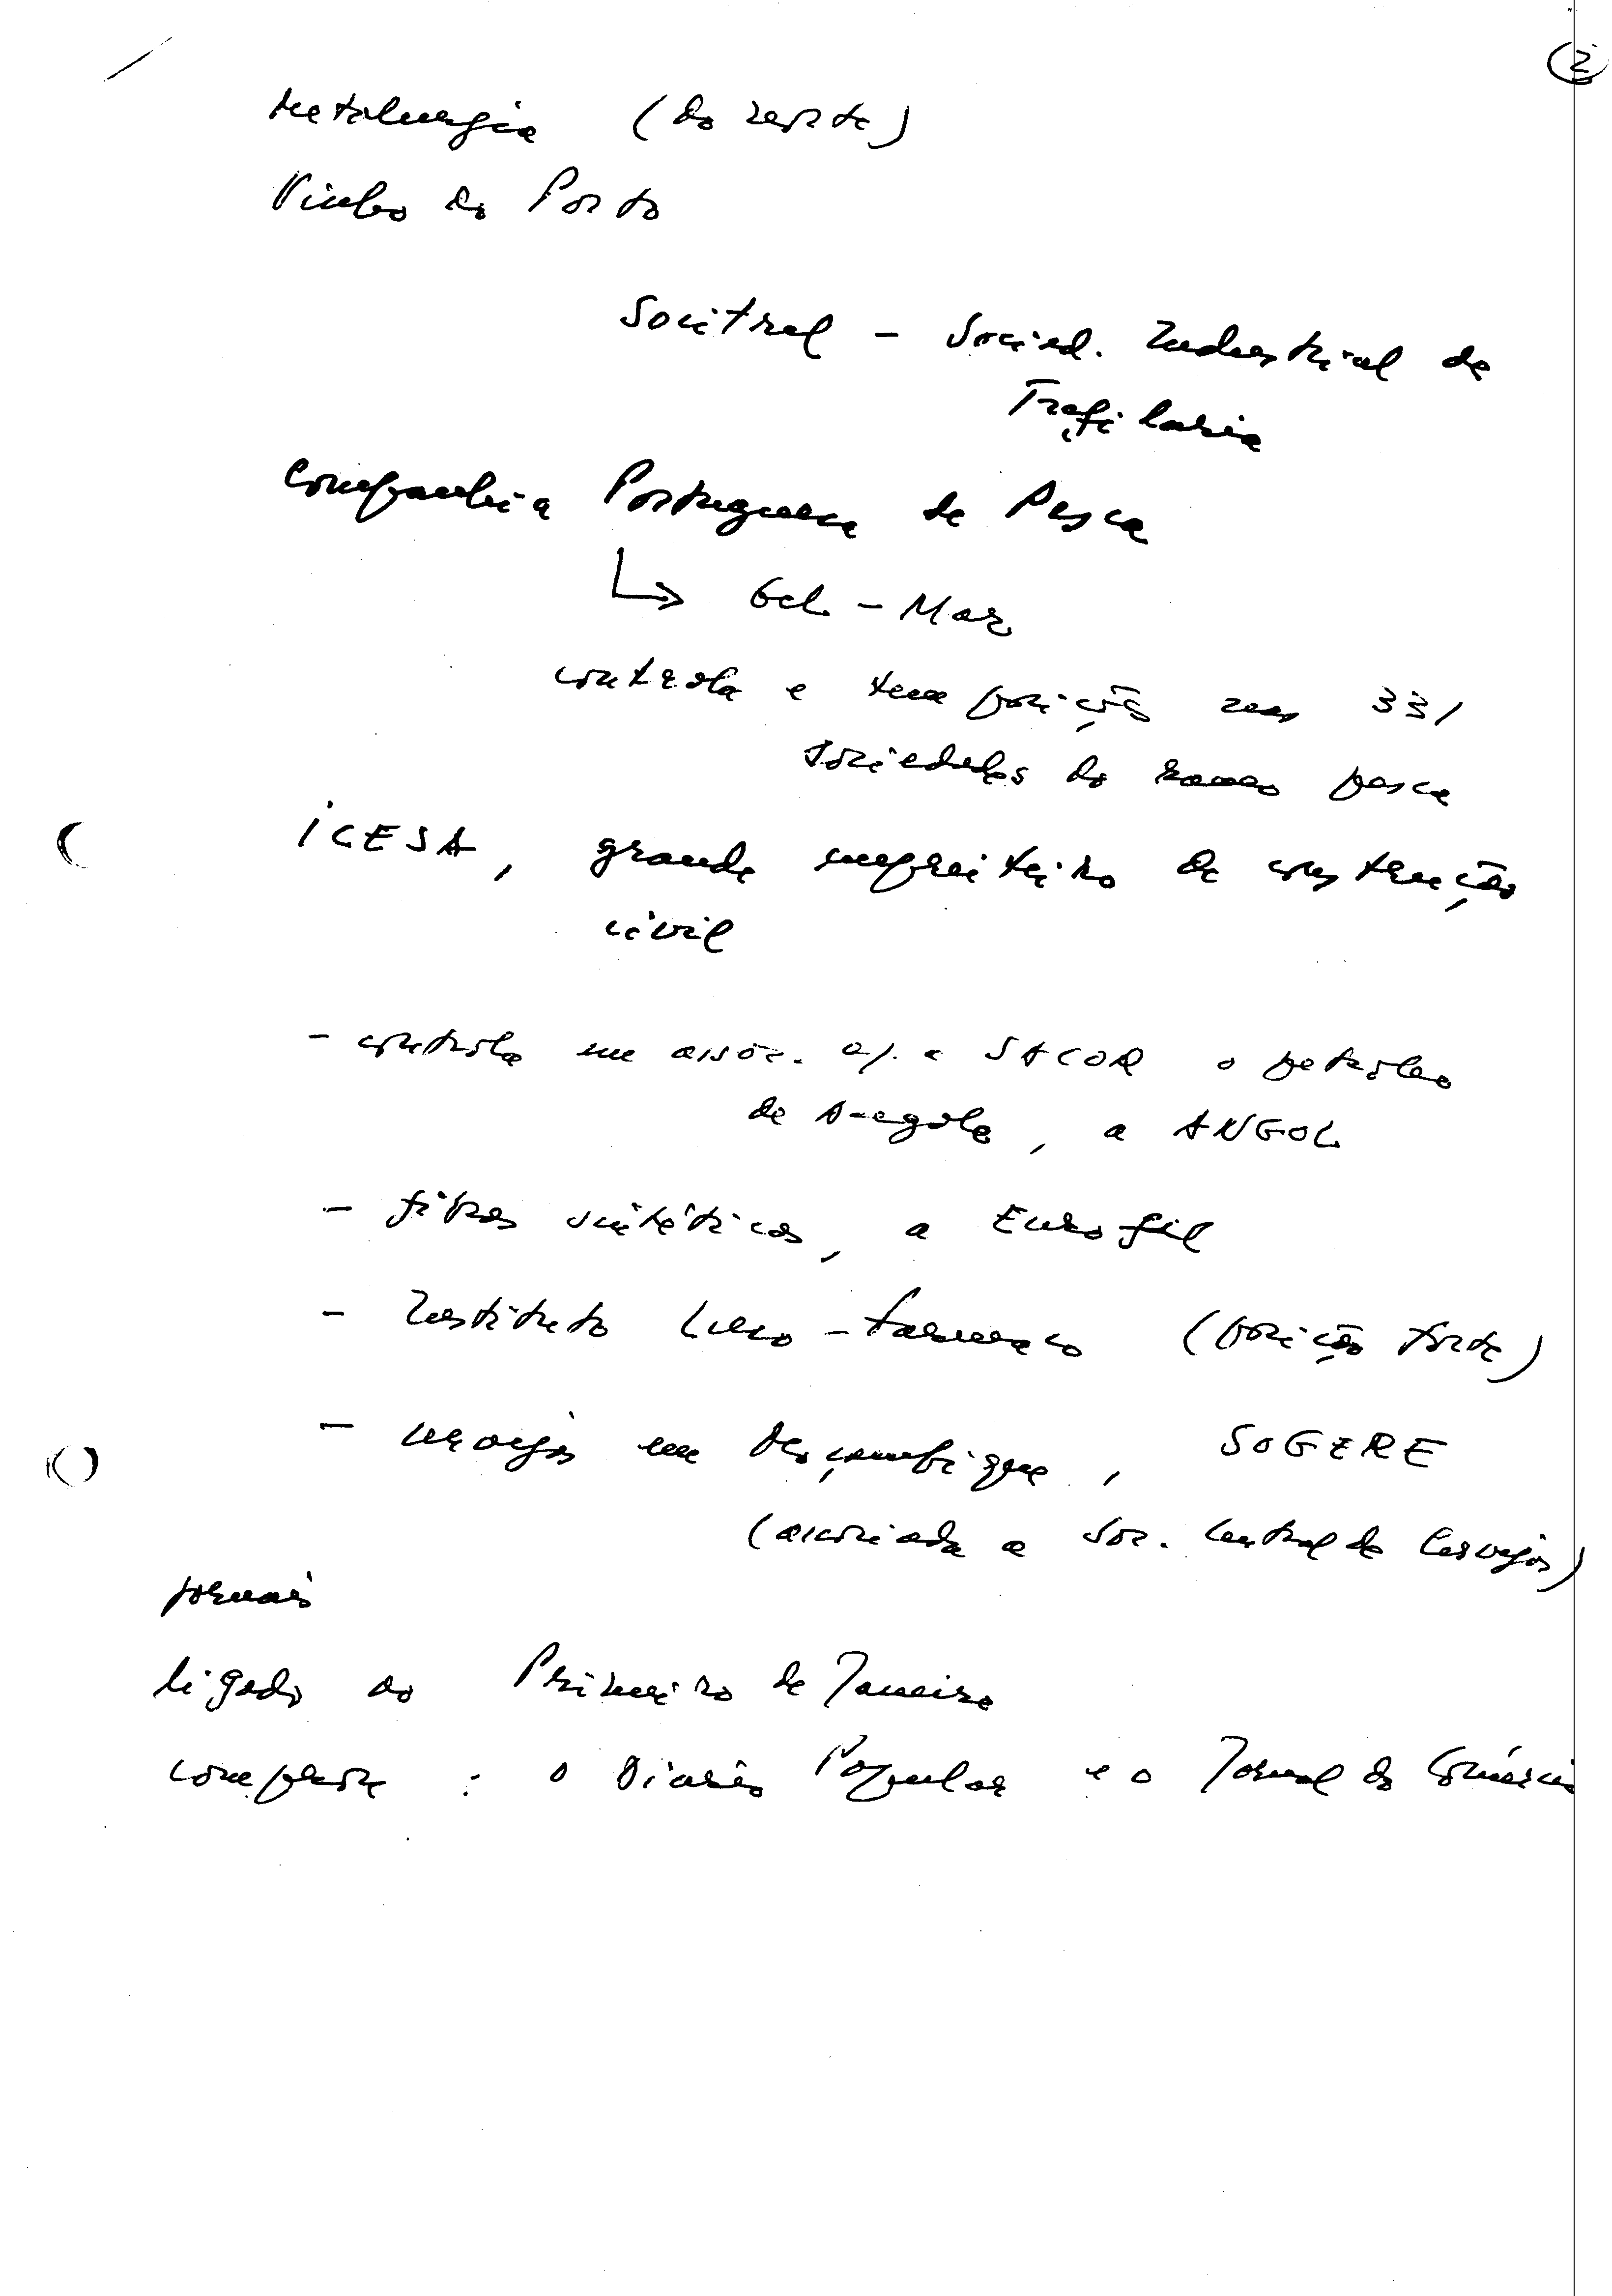 2
Metalurgia (do resto)
Vinho do Porto
Socitrel - Socied. Industrial de
Trefilaria
Companhia Portuguesa de Pesca
↳ Gel - Mar
controla e tem posição nas 33
sociedades do ramo pesca
ICESA, grande empreiteiro de construção
civil
- controla em assoc. c/ a SACOR o petróleo
de Angola, a ANGOL
- fibras sintéticas, a Eurofil
- Instituto Luso-Farmaco (posição forte)
- cervejas em Moçambique, SOGERE
(associada a Soc. Central de Cervejas)
jornais
ligado ao Primeiro de Janeiro
comprou : o Diário Popular e o Jornal do Comércio